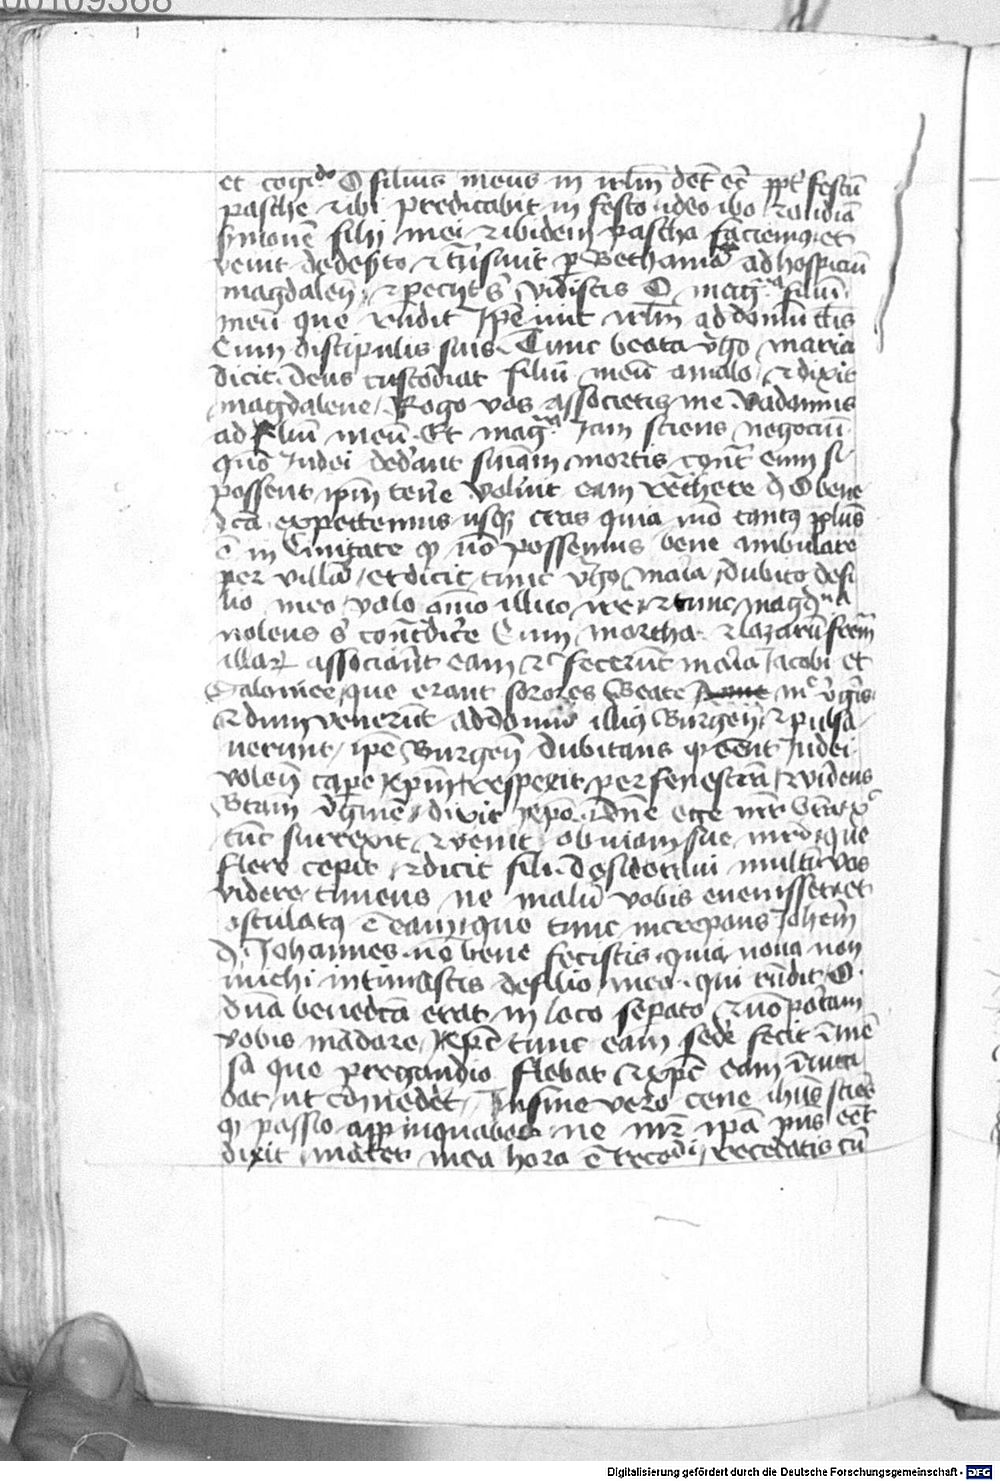 00109368
et cogi^do O filius meus in irlm det eē ppt festū
pasche et ibi predicabit in festo ideo ibo et audiā
symonē filij mei et ibidem pascha faciemus et
venit de et p Bethaniā ad hospiciū
magdaleñ et vidistis O mag^a filiū
meū que rñdit Ipē iuit irlm ad domū
Cum discipulis suis Tunc beata v̄go maria
dicit deus custodiat filiū meū a malo et dixit
magdalene Rogo vos associetis me vadamus
ad filiū meū Et mag^a Iam sciens negociū
quō Iudei dederant sniam mortis cont̄ eum si
possent ipm teñe voluit eam ret̄here d O bene
dcā expectemus usq cras quia mō tantus pplus
ē in Ciuitate q nō possemus bene ambulare
per villā et dicit tunc v̄go maia dubito de fi
lio meo volo oīno illuc ire et tunc magd^na
nolens s cont̄dic̄e Cum martha et lazarū frēm
illar associauit eam et fecerūt maria Iacobi et
Salomee que erant sorores Beate v̄gis
et dum venerūt ad domū illius Burgeñ et pulsa
uerunt ipē Burgeñ dubitans q eēnt Iudei
voleñ cape xpm respexit per fenestrā et videns
Btam v̄ginē dixit xpo dn̄e ecce mr̄ v̄ra xp̄c
tūc surrexit et venit obuiam sue mr̄i que
flere cepit et dicit fili desideraui multū vos
videre timens ne malū vobis euenisset et
osculatus ē eam que tunc increpans Iohem̄
d Iohannes nō bene fecistis quia noua non
michi intimastis de filio meo qui rñdit O
dn̄a benedcā erat in loco sepato et nō poteram
vobis mādare xpc tunc eam sede fecit ī mē
sa que pre gaudio flebat et xpc eam īuita
bat ut comedet In fine vero cene ihūs scies
q passio appinquabat ne mr̄ ipā pn̄s eēt
dixit mater mea hora ē recedatis cū
Digitalisierung gefördert durch die Deutsche Forschungsgemeinschaft - DFG